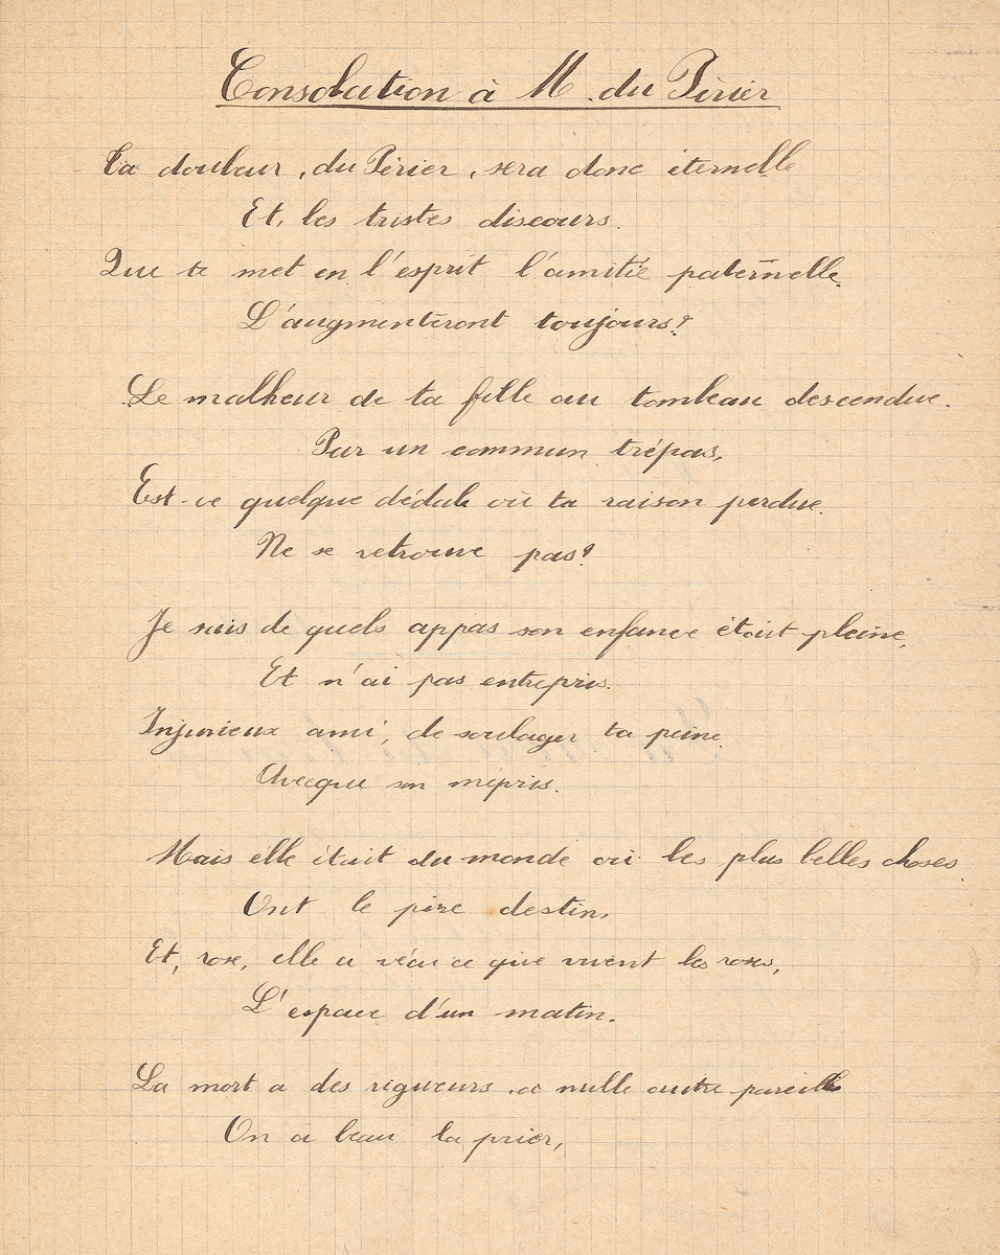 Consolation à M. du Périer
Ta douleur, du Périer, sera donc éternelle
Et, les tristes discours.
Que te met en l'esprit l'amitié paternelle.
L'augmenteront toujours?
Le malheur de ta fille au tombeau descendue.
Par un commun trépas,
Est-ce quelque dédale où ta raison perdue.
Ne se retrouve pas?
Je sais de quels appas son enfance était pleine,
Et n'ai pas entrepris.
Injurieux ami, de soulager ta peine.
Avecque son mépris.
Mais elle était du monde où les plus belles choses.
Ont le pire destin,
Et, rose, elle a vécu ce que vivent les roses,
L'espace d'un matin.
La mort a des rigueurs a nulle autre pareille
On a beau la prier,